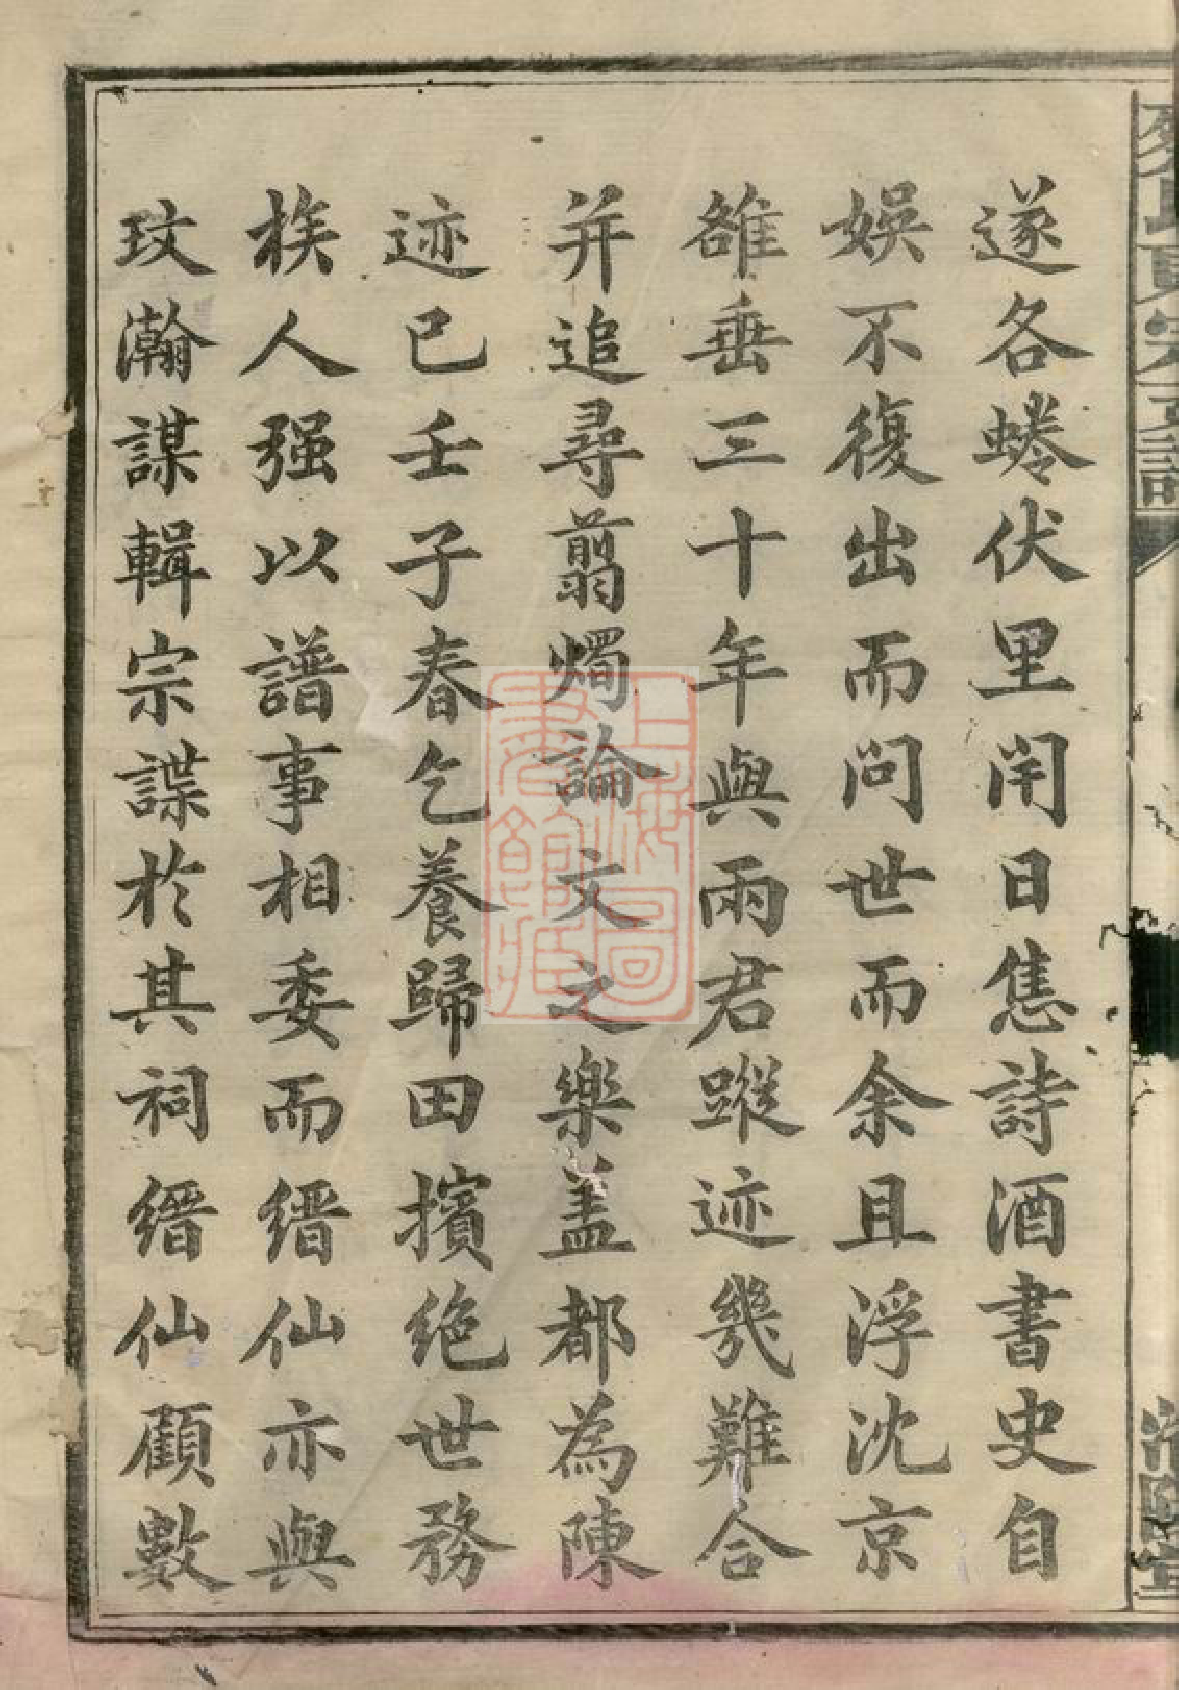 遂各蜷伏里闬日惟詩酒書史自
娛不復出而問世而余且浮沈京
雒垂三十年與兩君蹤迹幾難合
并追尋翦燭論文之樂盖都為陳
迹已壬子春乞養歸田擯绝世務
族人强以譜事相委而缙仙亦與
玟瀚謀輯宗諜於其祠缙仙顧數
上海圖書館藏